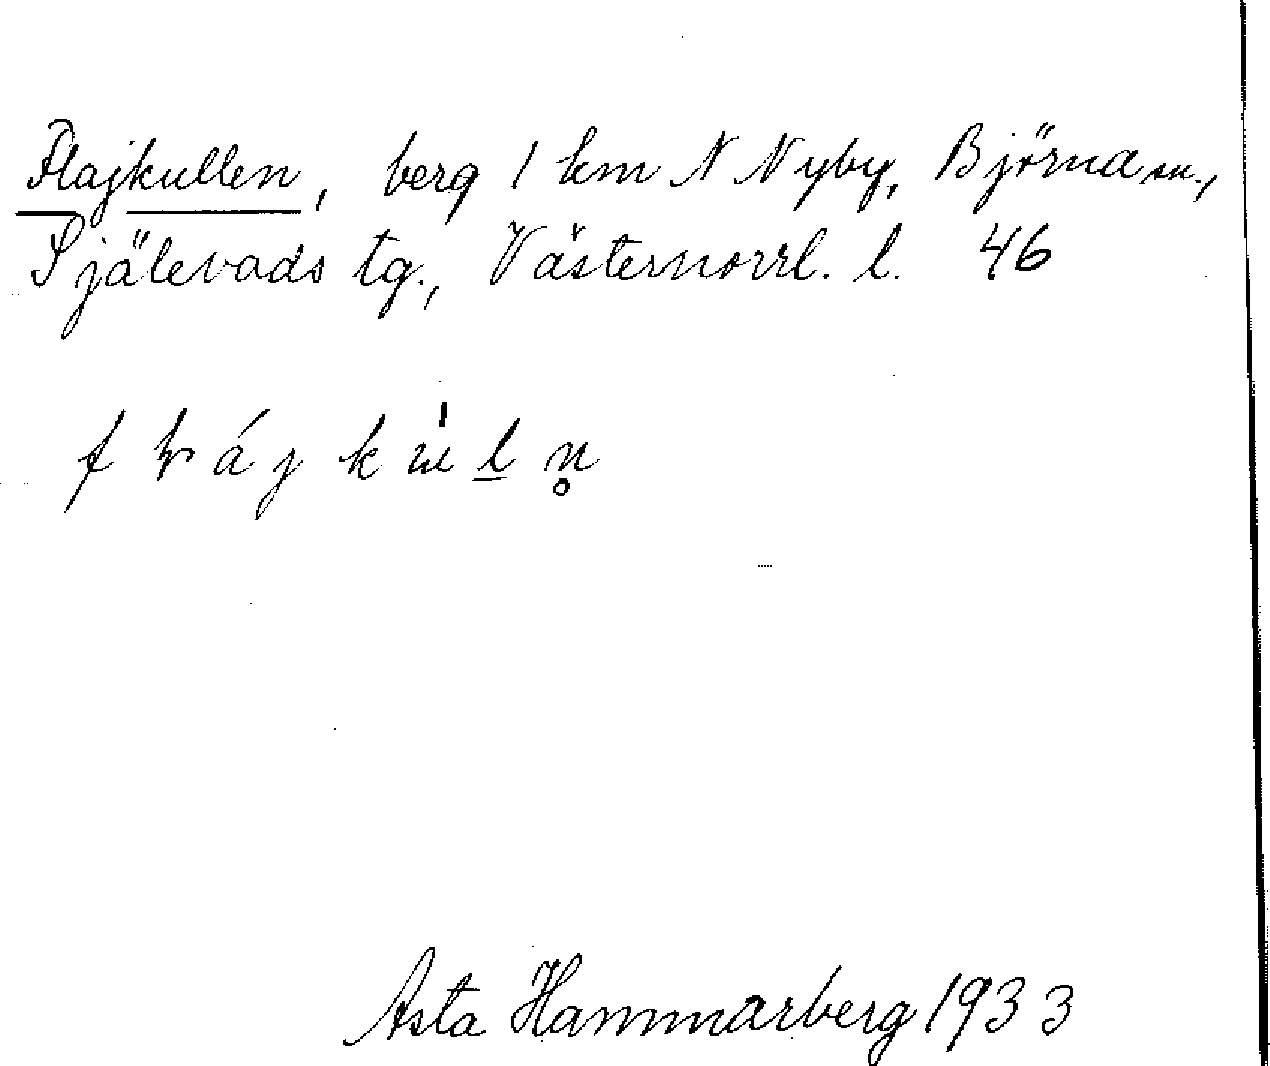 Flajkullen, berg 1 km N Nyby, Björna sn.,
Själevads tg., Västernorrl. l. 46
Asta Hammarberg 1933